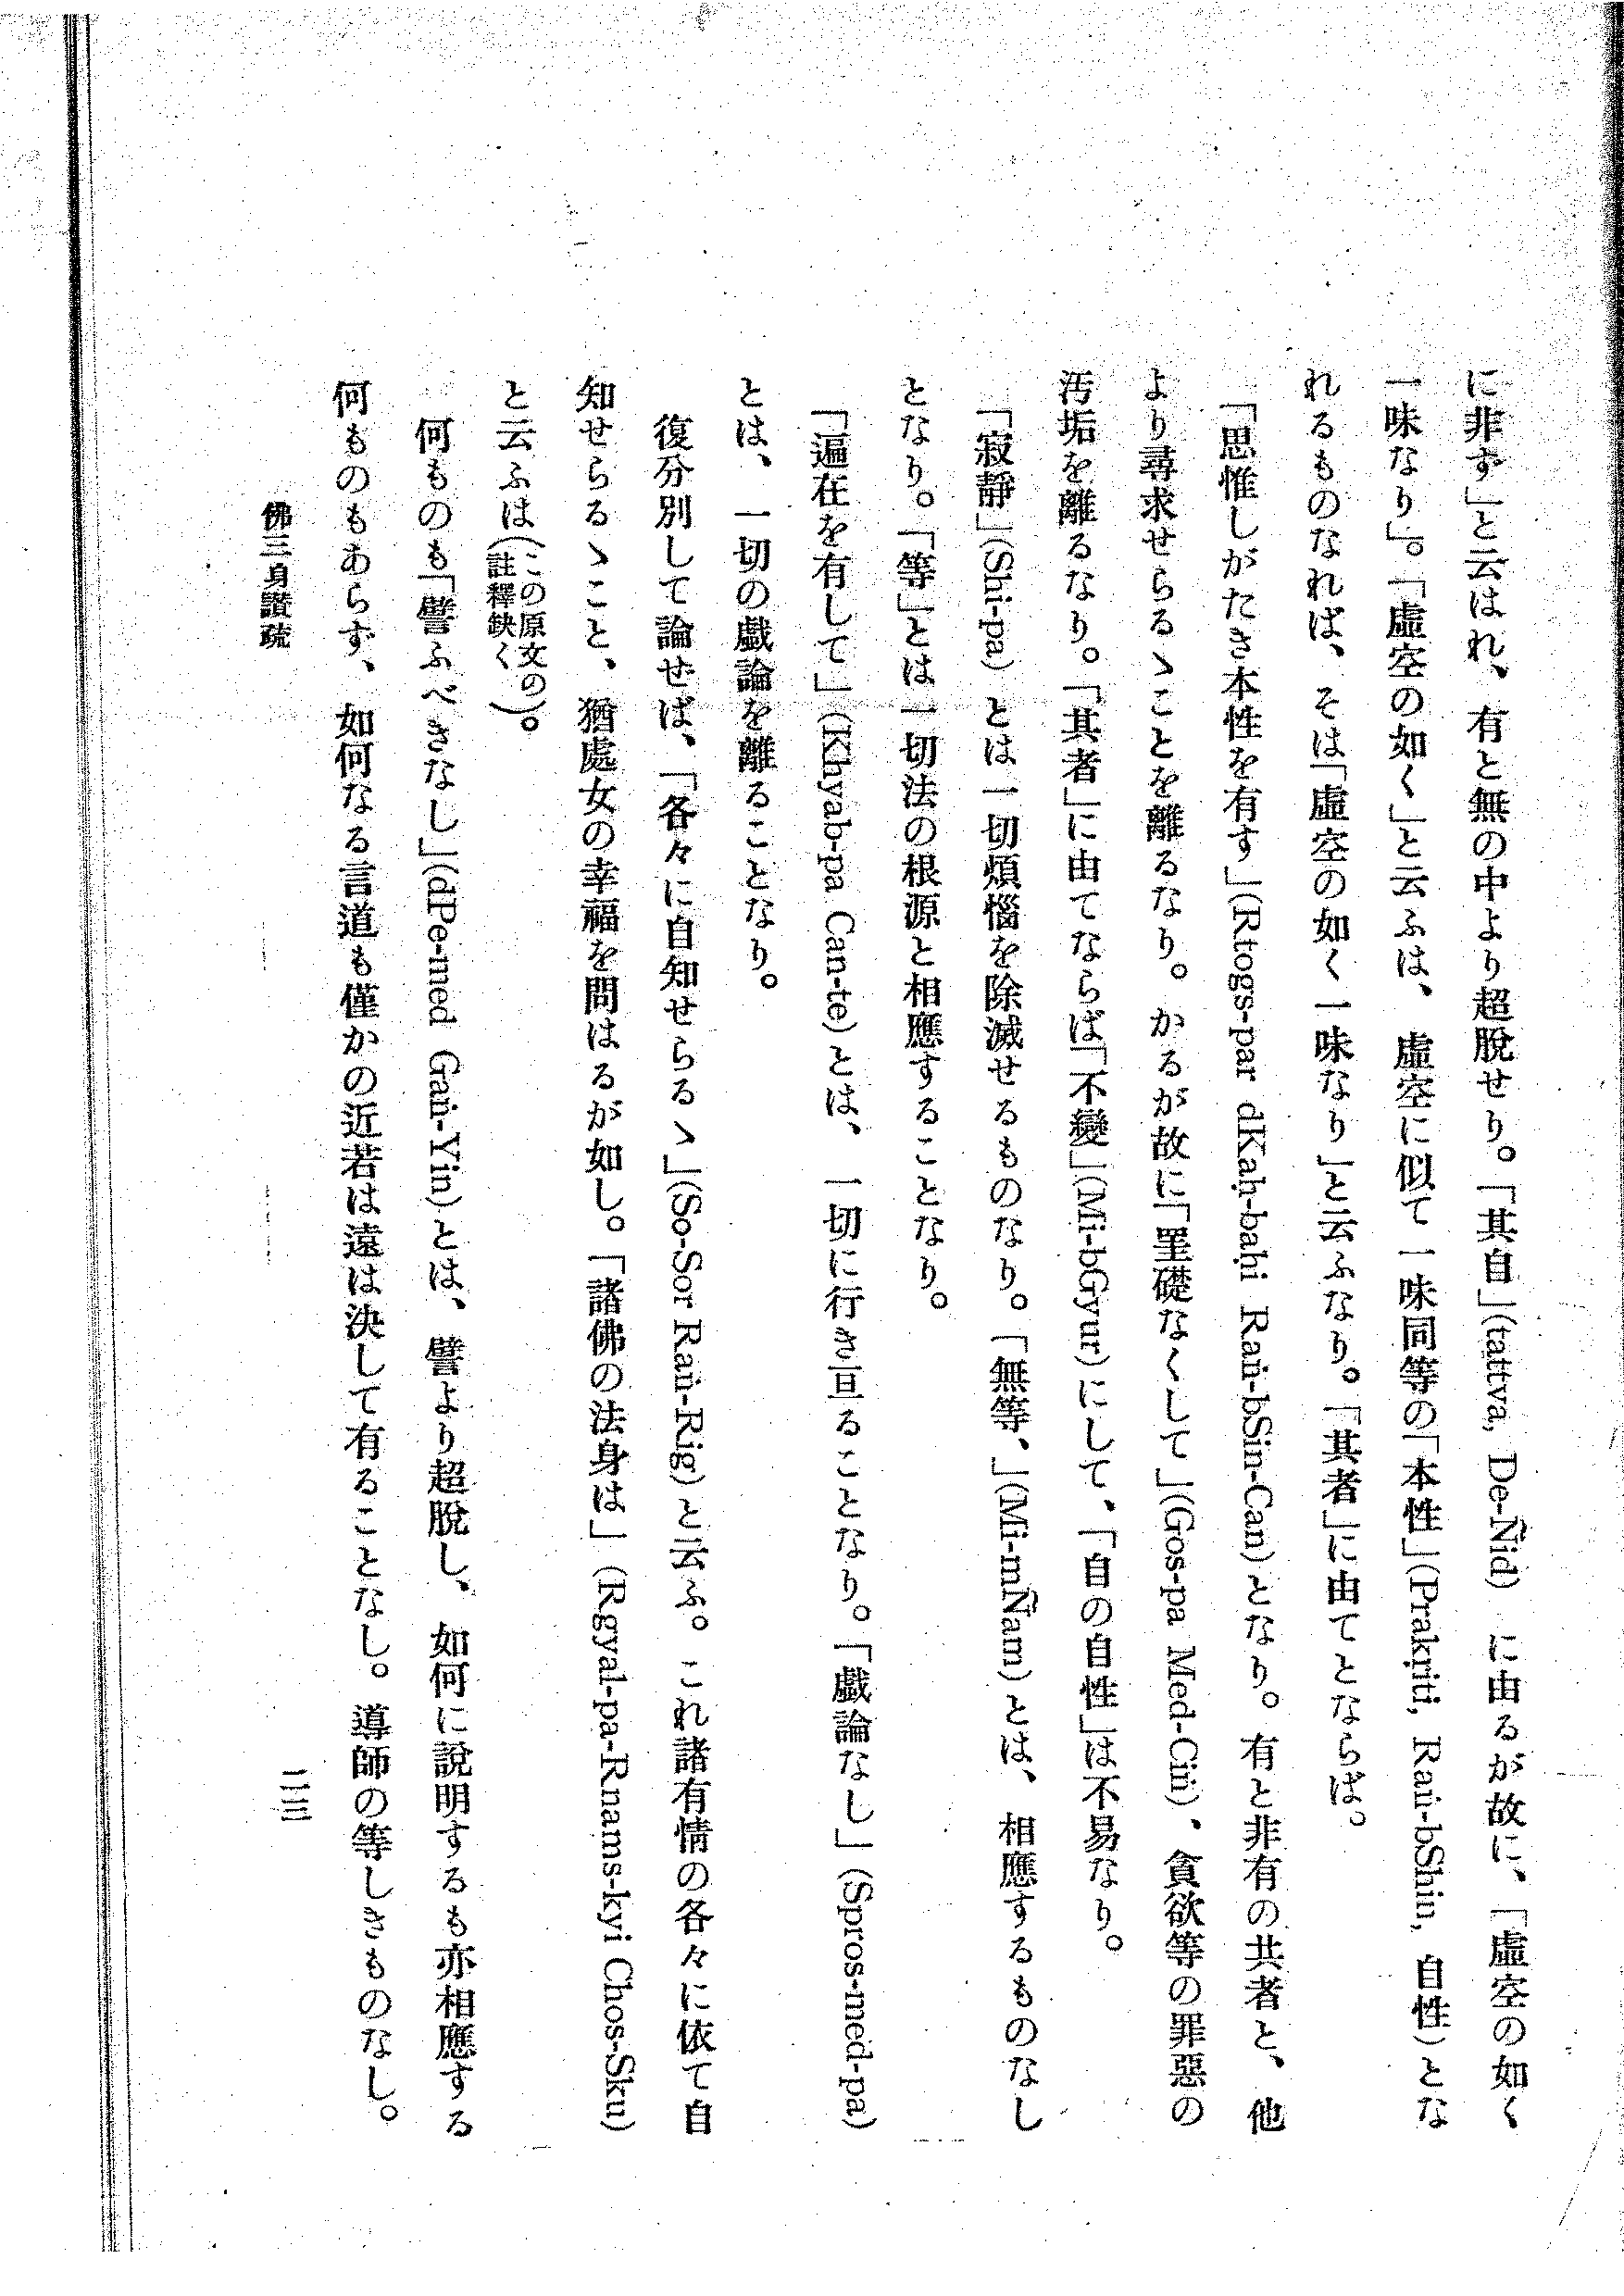 に非ず」と云はれ、有と無の中より超脫せり。「其自」(tattva, De-Ñid) に由るが故に、「虛空の如く
一味なり」。「虛空の如く」と云ふは、虛空に似て一味同等の「本性」(Prakṛiti, Raṅ-bShin, 自性)とな
れるものなれば、そは「虛空の如く一味なり」と云ふなり。「其者」に由てとならば。
「思惟しがたき本性を有す」(Rtogs-par dKaḥ-baḥi Raṅ-bSin-Can)となり。有と非有の共者と、他
より尋求せらるゝことを離るなり。かるが故に「罣礙なくして」(Gos-pa Med-Ciṅ)、貪欲等の罪惡の
汚垢を離るなり。「其者」に由てならば「不變」(Mi-bGyur)にして、「自の自性」は不易なり。
「寂靜」(Shi-pa) とは一切煩惱を除滅せるものなり。「無等、」(Mi-mÑam)とは、相應するものなし
となり。「等」とは一切法の根源と相應することなり。
「遍在を有して」(Khyab-pa Can-te)とは、一切に行き亘ることなり。「戲論なし」(Spros-med-pa)
とは、一切の戲論を離ることなり。
復分別して論せば、「各々に自知せらるゝ」(So-Sor Raṅ-Rig)と云ふ。これ諸有情の各々に依て自
知せらるゝこと、猶處女の幸福を問はるが如し。「諸佛の法身は」(Rgyal-pa-Rnams-kyi Chos-Sku)
と云ふは(この原文の註釋缺く)。
何ものも「譬ふべきなし」(dPe-med Gaṅ-Yin)とは、譬より超脫し、如何に說明するも亦相應する
何ものもあらず、如何なる言道も僅かの近若は遠は決して有ることなし。導師の等しきものなし。
佛三身讃疏
二三